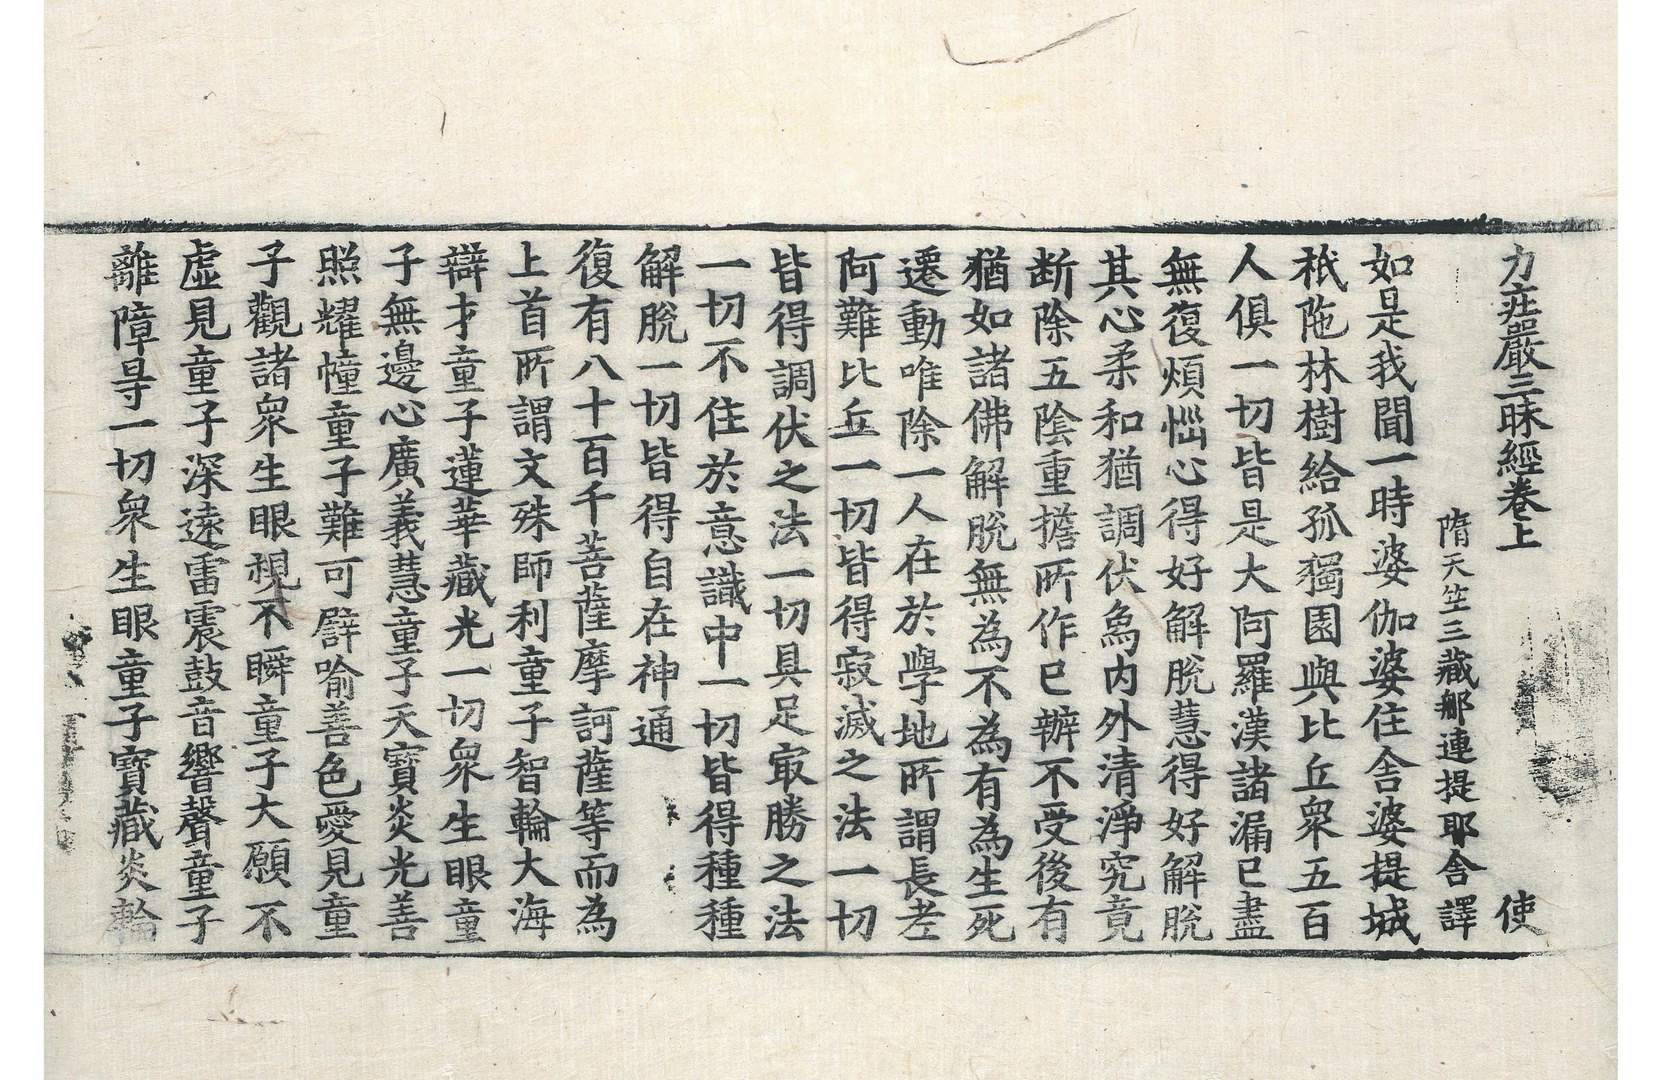 力莊嚴三昧經卷上　使
隋天竺三藏那連提耶舍譯
如是我聞一時婆伽婆住舍婆提城
秖陁林樹給孤獨園與比丘衆五百
人俱一切皆是大阿羅漢諸漏已盡
無復煩惱心得好解脫慧得好解脫
其心柔和猶調伏象內外清淨究竟
断除五陰重擔所作已辦不受後有
猶如諸佛解脫無為不為有為生死
遷動唯除一人在於學地所謂長老
阿難比丘一切皆得寂滅之法一切
皆得調伏之法一切具足冣勝之法
一切不住於意識中一切皆得種種
解脫一切皆得自在神通
復有八十百千菩薩摩訶薩等而為
上首所謂文殊師利童子智輪大海
辯才童子蓮華藏光一切衆生眼童
子無邊心廣義慧童子天寶炎光善
照耀幢童子難可譬喻善色愛見童
子觀諸衆生眼視不瞬童子大願不
虛見童子深遠雷震鼓音響聲童子
離障㝵一切衆生眼童子寶藏炎輪